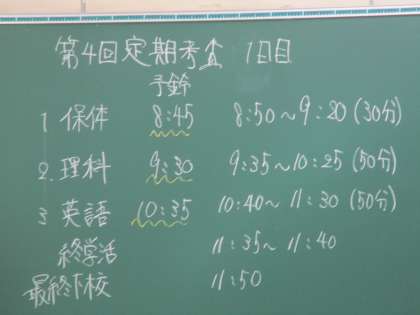 第4回定期考査 1日目
予鈴
1 保体 8:45 8:50～9:20 (30分)
2. 理科 9:30 9:35～10:25 (50分)
3 英語 10:35 10:40～11:30 (50分)
終学活 11:35～11:40
最終下校 11:50